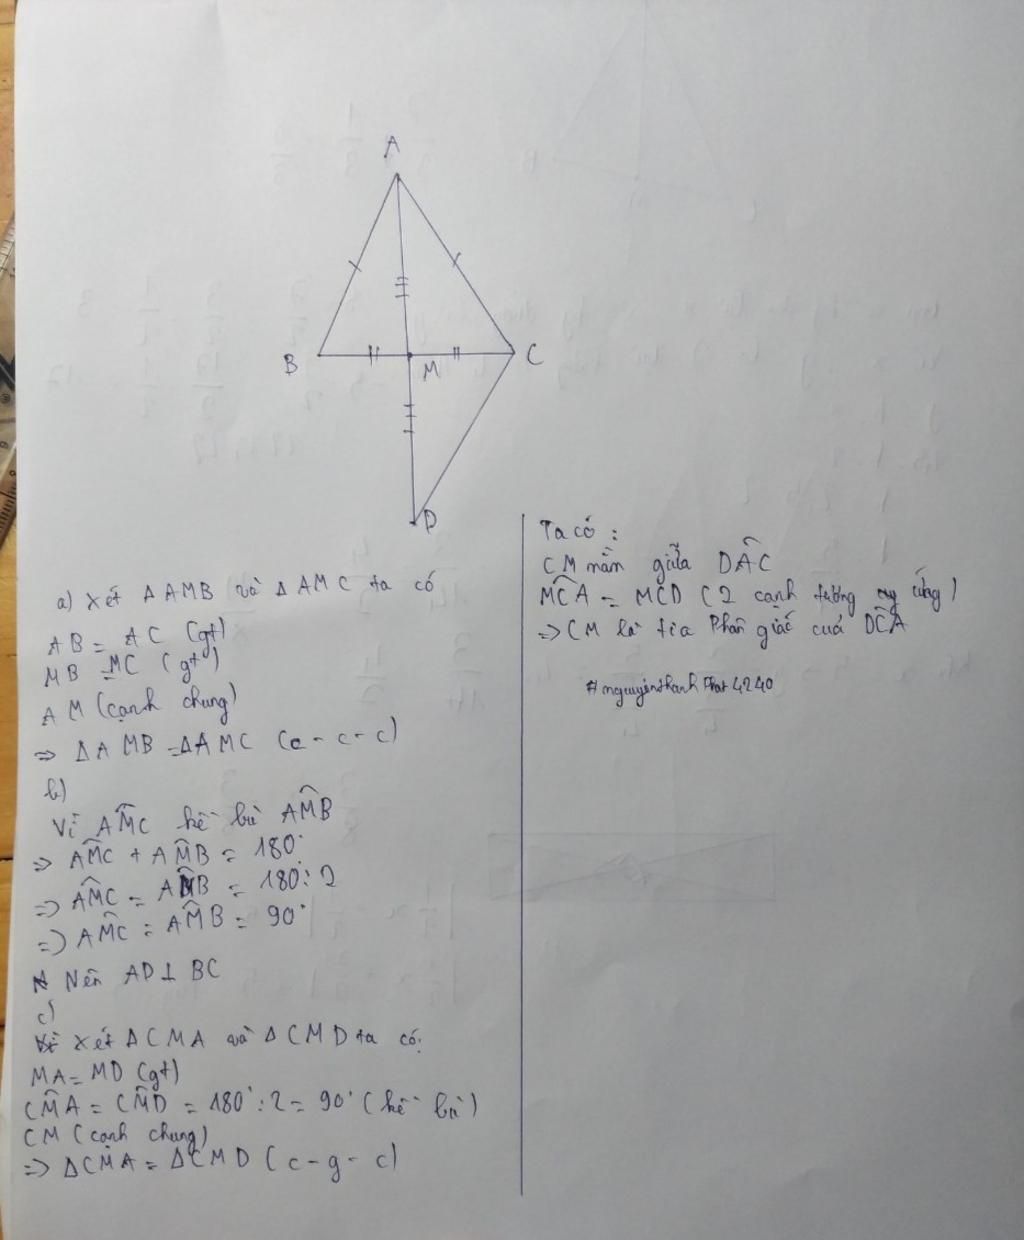 A
B
M
C
D
a) Xét ΔAMB và ΔAMC ta có
AB = AC (gt)
MB = MC (gt)
AM (cạnh chung)
=> ΔAMB = ΔAMC (c-c-c)
b)
Vì AM̂C kề bù AM̂B
=> AM̂C + AM̂B = 180°
=> AM̂C = AM̂B = 180°:2
=> AM̂C = AM̂B = 90°
Nên AD⊥BC
c)
Xét ΔCMA và ΔCMD ta có:
MA = MD (gt)
CM̂A = CM̂D = 180°:2 = 90° (kề bù)
CM (cạnh chung)
=> ΔCMA = ΔCMD (c-g-c)
Ta có:
CM nằm giữa DÂC
MĈA = MCD (2 cạnh tương ứng)
=> CM là tia Phân giác cuả DĈA
#nguyenthanhPhat4240